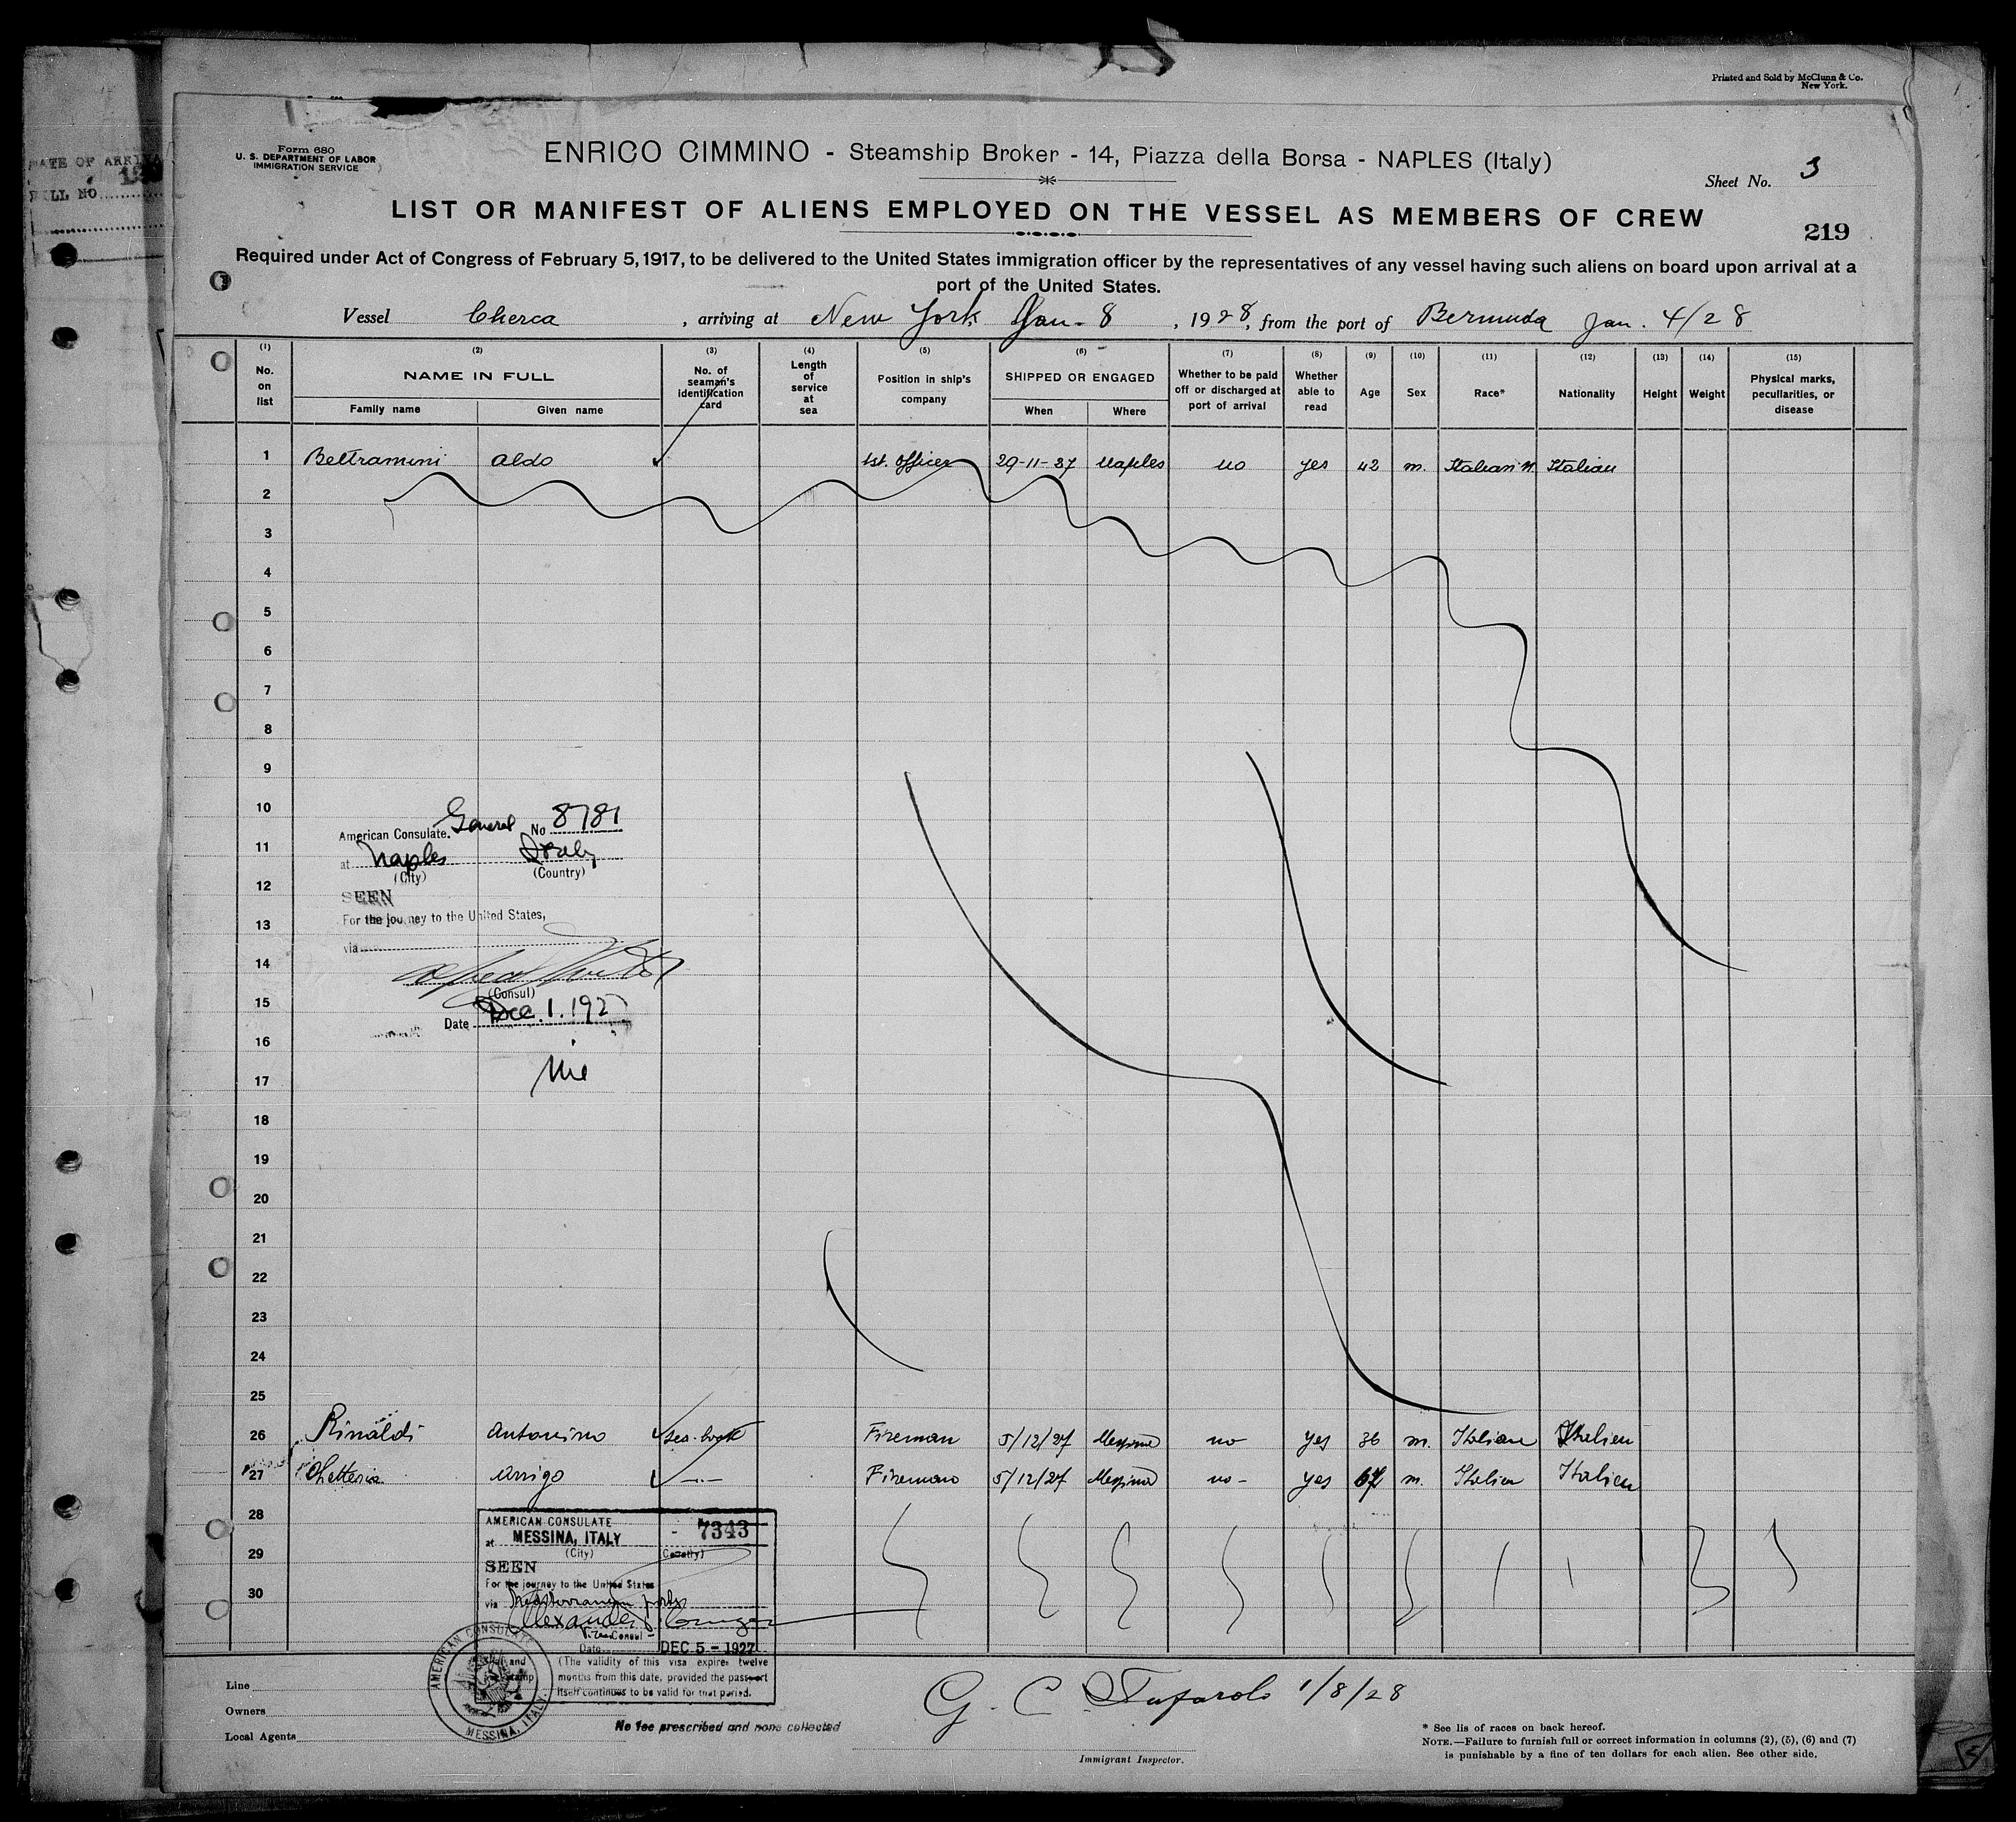 Printed and Sold by McClunn & Co.
New York.
Form 680
U. S. DEPARTMENT OF LABOR
IMMIGRATION SERVICE
ENRICO CIMMINO - Steamship Broker - 14, Piazza della Borsa - NAPLES (Italy)
Sheet No. 3
LIST OR MANIFEST OF ALIENS EMPLOYED ON THE VESSEL AS MEMBERS OF CREW
219
Required under Act of Congress of February 5, 1917, to be delivered to the United States immigration officer by the representatives of any vessel having such aliens on board upon arrival at a
port of the United States.
Vessel Cherca, arriving at New York Jan. 8, 1928, from the port of Bermuda Jan. 4/28
(1) (2) (3) (4) (5) (6) (7) (8) (9) (10) (11) (12) (13) (14) (15)
No. on list
NAME IN FULL
Family name Given name
No. of seaman's identification card
Length of service at sea
Position in ship's company
SHIPPED OR ENGAGED
When Where
Whether to be paid off or discharged at port of arrival
Whether able to read
Age
Sex
Race*
Nationality
Height
Weight
Physical marks, peculiarities, or disease
1 Beltramini Aldo 1st. Officer 29-11-27 Naples no yes 42 m. Italian N. Italian
2
3
4
5
6
7
8
9
10
American Consulate. General No 8781
11
at Naples Italy
(City) (Country)
12
SEEN
13
For the journey to the United States,
via
14
(Consul)
15
Date Dec. 1. 192
16
17
18
19
20
21
22
23
24
25
26 Rinaldi Antonino sea-book Fireman 5/12/27 Messina no yes 36 m. Italian Italien
27 Arrigo Fireman 5/12/27 Messina no - yes m. Italien Italien
28
29
30
AMERICAN CONSULATE - 7343
at MESSINA, ITALY
(City) (Country)
SEEN
For the journey to the United States
via Mediterranean ports
Vice Consul
Date DEC 5 - 1927
(The validity of this visa expires twelve
months from this date, provided the passport
itself continues to be valid for that period.
AMERICAN CONSULATE
MESSINA, ITALY.
Line
Owners
Local Agents
No fee prescribed and none collected
G. C. 1/8/28
Immigrant Inspector.
* See lis of races on back hereof.
NOTE.—Failure to furnish full or correct information in columns (2), (5), (6) and (7)
is punishable by a fine of ten dollars for each alien. See other side.
DATE OF ARRIVA